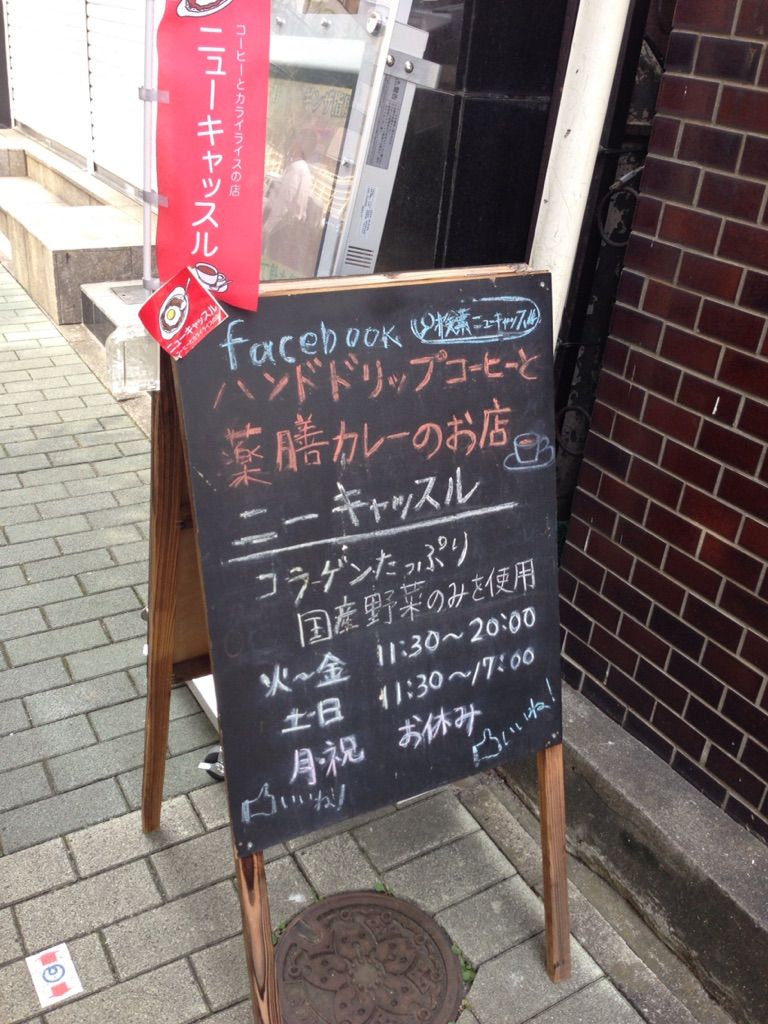 コーヒーとカライライスの店
ニューキャッスル
ニューキャッスル
facebook 検索 ニューキャッスル
ハンドドリップコーヒーと
薬膳カレーのお店
ニーキャッスル
コラーゲンたっぷり
国産野菜のみを使用
火～金 11:30～20:00
土・日 11:30～17:00
月・祝 お休み
いいね!
いいね!